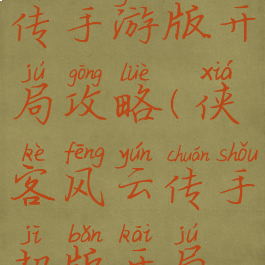 传手游版开
jú gōng lüè xiá
局攻略(侠
kè fēng yún chuán shǒu
客风云传手
jī bǎn kāi jú
机版开局